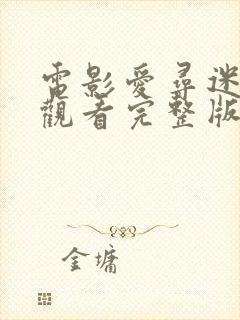 電影愛尋迷
觀看完整版
金墉